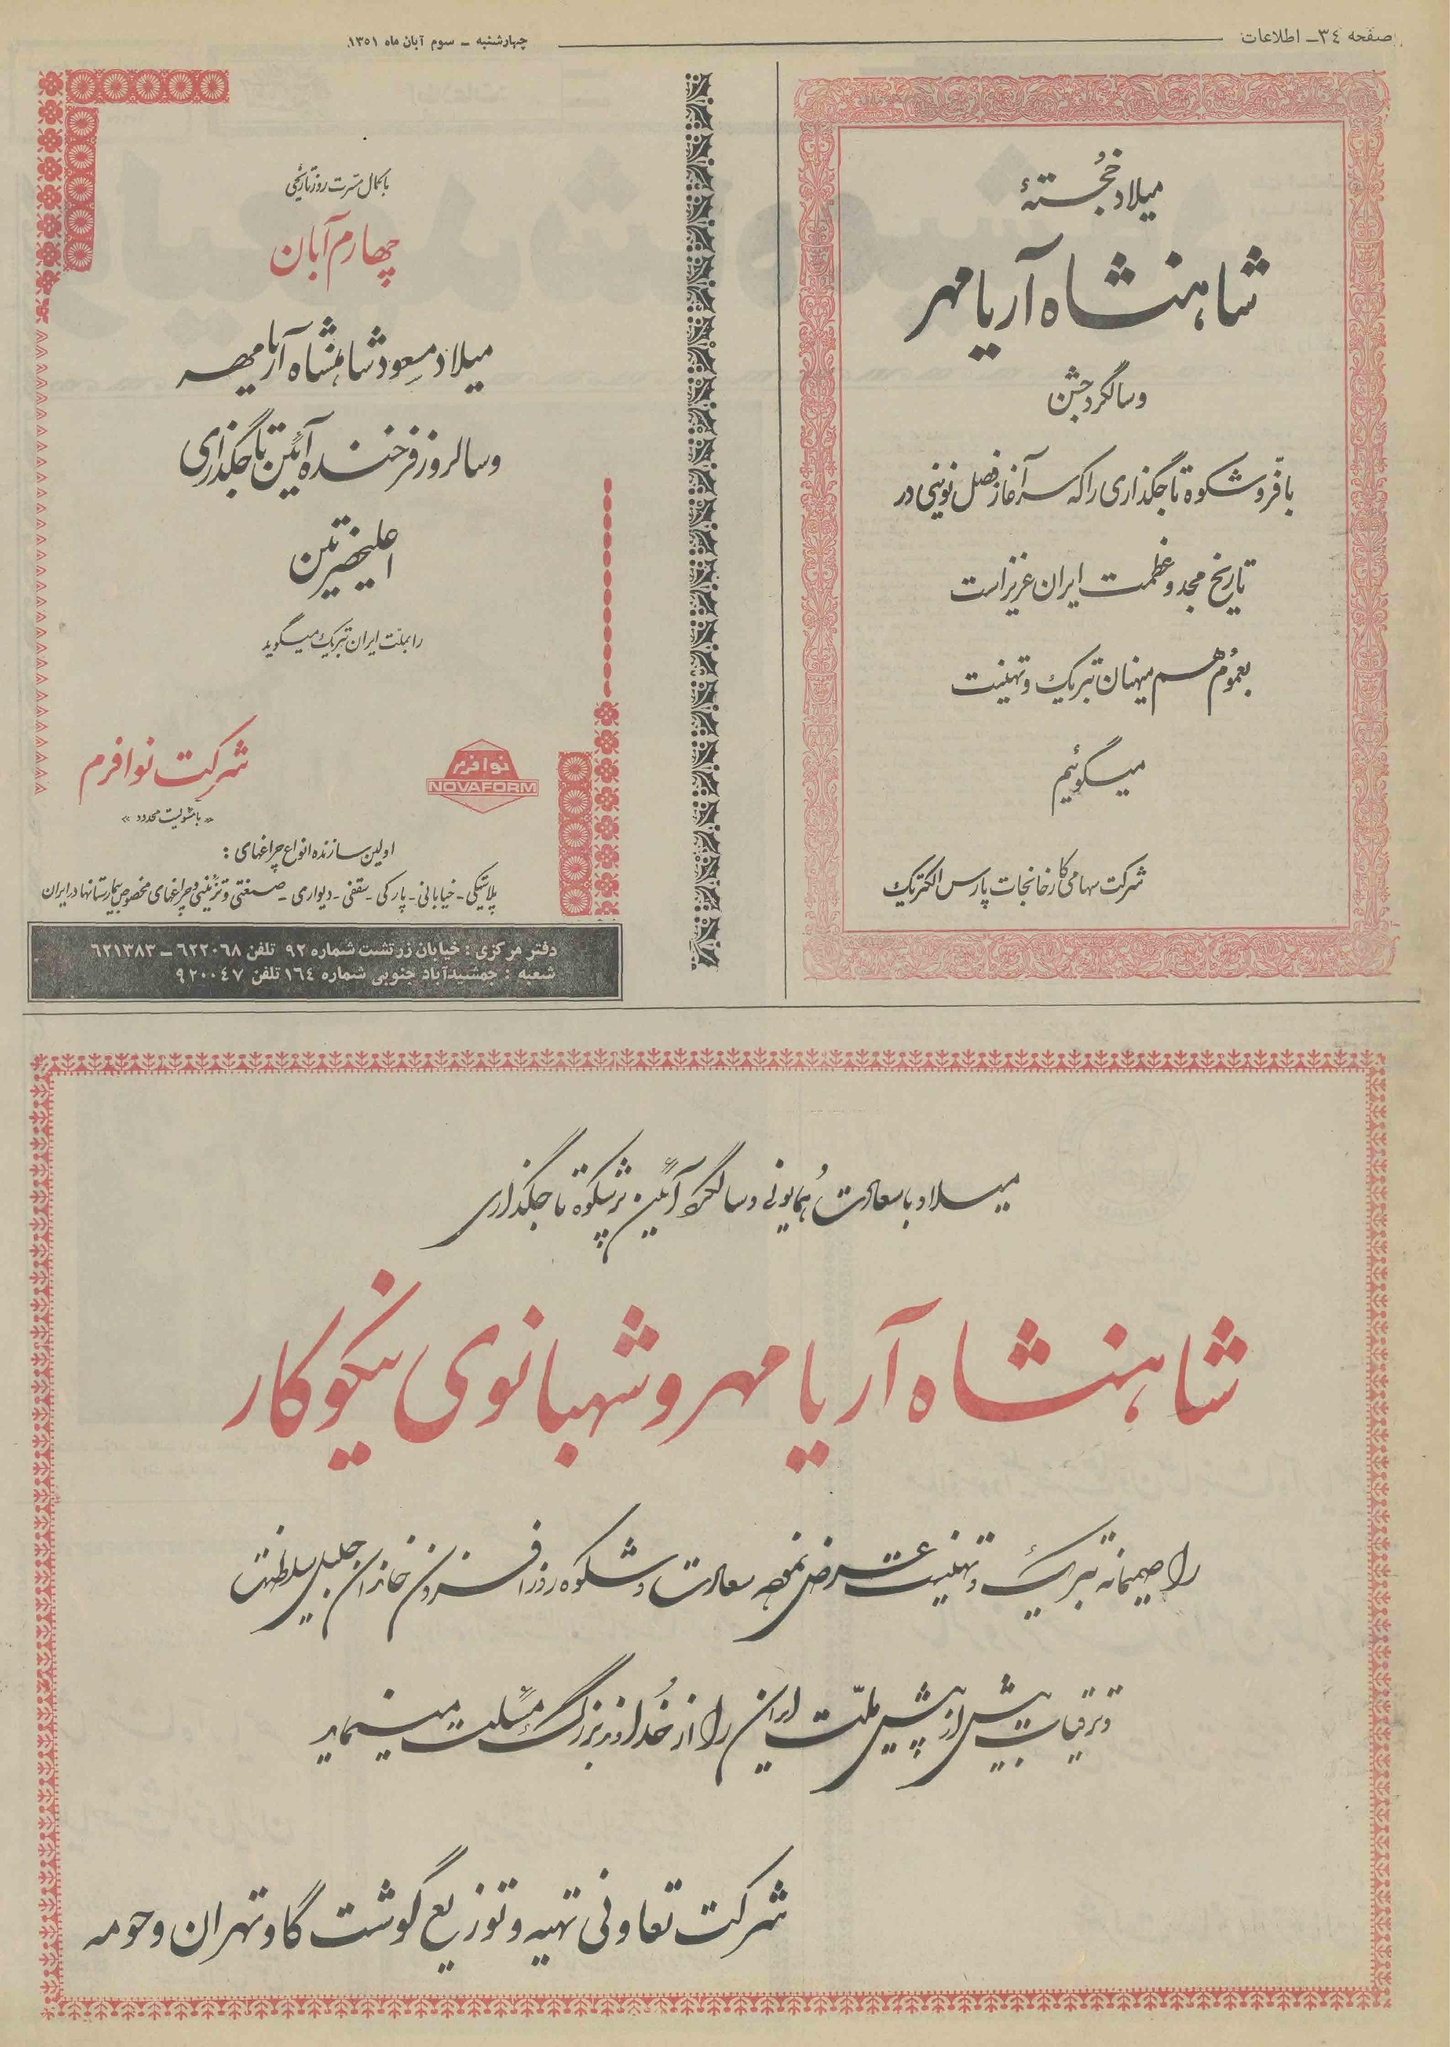 صفحه ۳٤ - اطلاعات
چهارشنبه - سوم آبان ماه ۱۳۵۱
میلاد خجستهٔ
شاهنشاه آریامهر
و سالگرد جشن
با فرّ و شکوه تاجگذاری را که سرآغاز فصل نوینی در
تاریخ مجد و عظمت ایران عزیز است
بعموم هم میهنان تبریک و تهنیت
میگوئیم
شرکت سهامی کارخانجات پارس الکتریک
با کمال مسرت روز تاریخی
چهارم آبان
میلاد مسعود شاهنشاه آریامهر
و سالروز فرخنده آئین تاجگذاری
اعلیحضرتین
را بملت ایران تبریک میگوید
نوافرم
NOVAFORM
شرکت نوافرم
« با مسئولیت محدود »
اولین سازنده انواع چراغهای :
پلاستیکی - خیابانی - پارکی - سقفی - دیواری - صنعتی و تزئینی و چراغهای مخصوص بیمارستانها در ایران
دفتر مرکزی : خیابان زرتشت شماره ۹۲ تلفن ٦۲۲۰٦۸ - ٦۲۱۳۸۳
شعبه : جمشیدآباد جنوبی شماره ۱٦٤ تلفن ۹۲۰۰٤۷
میلاد با سعادت همایونی و سالگرد آئین پرشکوه تاجگذاری
شاهنشاه آریامهر و شهبانوی نیکوکار
را صمیمانه تبریک و تهنیت عرض نموده سعادت و شکوه روزافزون خاندان جلیل سلطنت
و ترقیات بیش از پیش ملّت ایران را از خداوند بزرگ مسئلت مینماید
شرکت تعاونی تهیه و توزیع گوشت گاو تهران و حومه